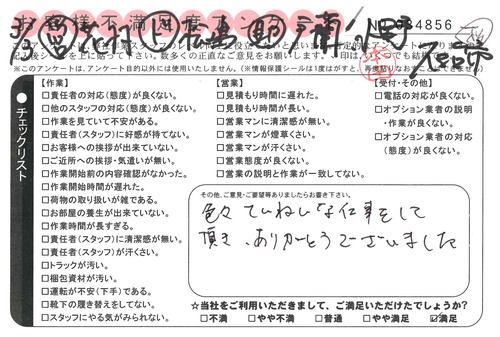 お客様不満足度アンケート
№ 084856
【作業】
□責任者の対応(態度)が良くない。
□他のスタッフの対応(態度)が良くない。
□作業を見ていて不安がある。
□責任者(スタッフ)に好感が持てない。
□お客様への挨拶が出来ていない。
□ご近所への挨拶・気遣いが無い。
□作業開始前の内容確認がなかった。
□作業開始時間が遅れた。
□荷物の取り扱いが雑である。
□お部屋の養生が出来ていない。
□作業時間が長すぎる。
□責任者(スタッフ)に清潔感が無い。
□責任者(スタッフ)が汗くさい。
□トラックが汚い。
□梱包資材が汚い。
□運転が不安(下手)である。
□靴下の履き替えをしてない。
□スタッフにやる気がみられない。
【営業】
□見積もり時間に遅れた。
□見積もり時間が長い。
□営業マンに清潔感が無い。
□営業マンが煙草くさい。
□営業マンが汗くさい。
□営業態度が良くない。
□営業の説明と作業が一致してない。
【受付・その他】
□電話の対応が良くない。
□オプション業者の説明
・作業が良くない。
□オプション業者の対応
(態度)が良くない。
チェックリスト
その他、ご意見・ご要望等ありましたらお書き下さい。
色々ていねいな仕事をして
頂き、ありがとうございました
☆当社をご利用いただきまして、ご満足いただけたでしょうか?
□不満 □やや不満 □普通 □やや満足 ☑満足